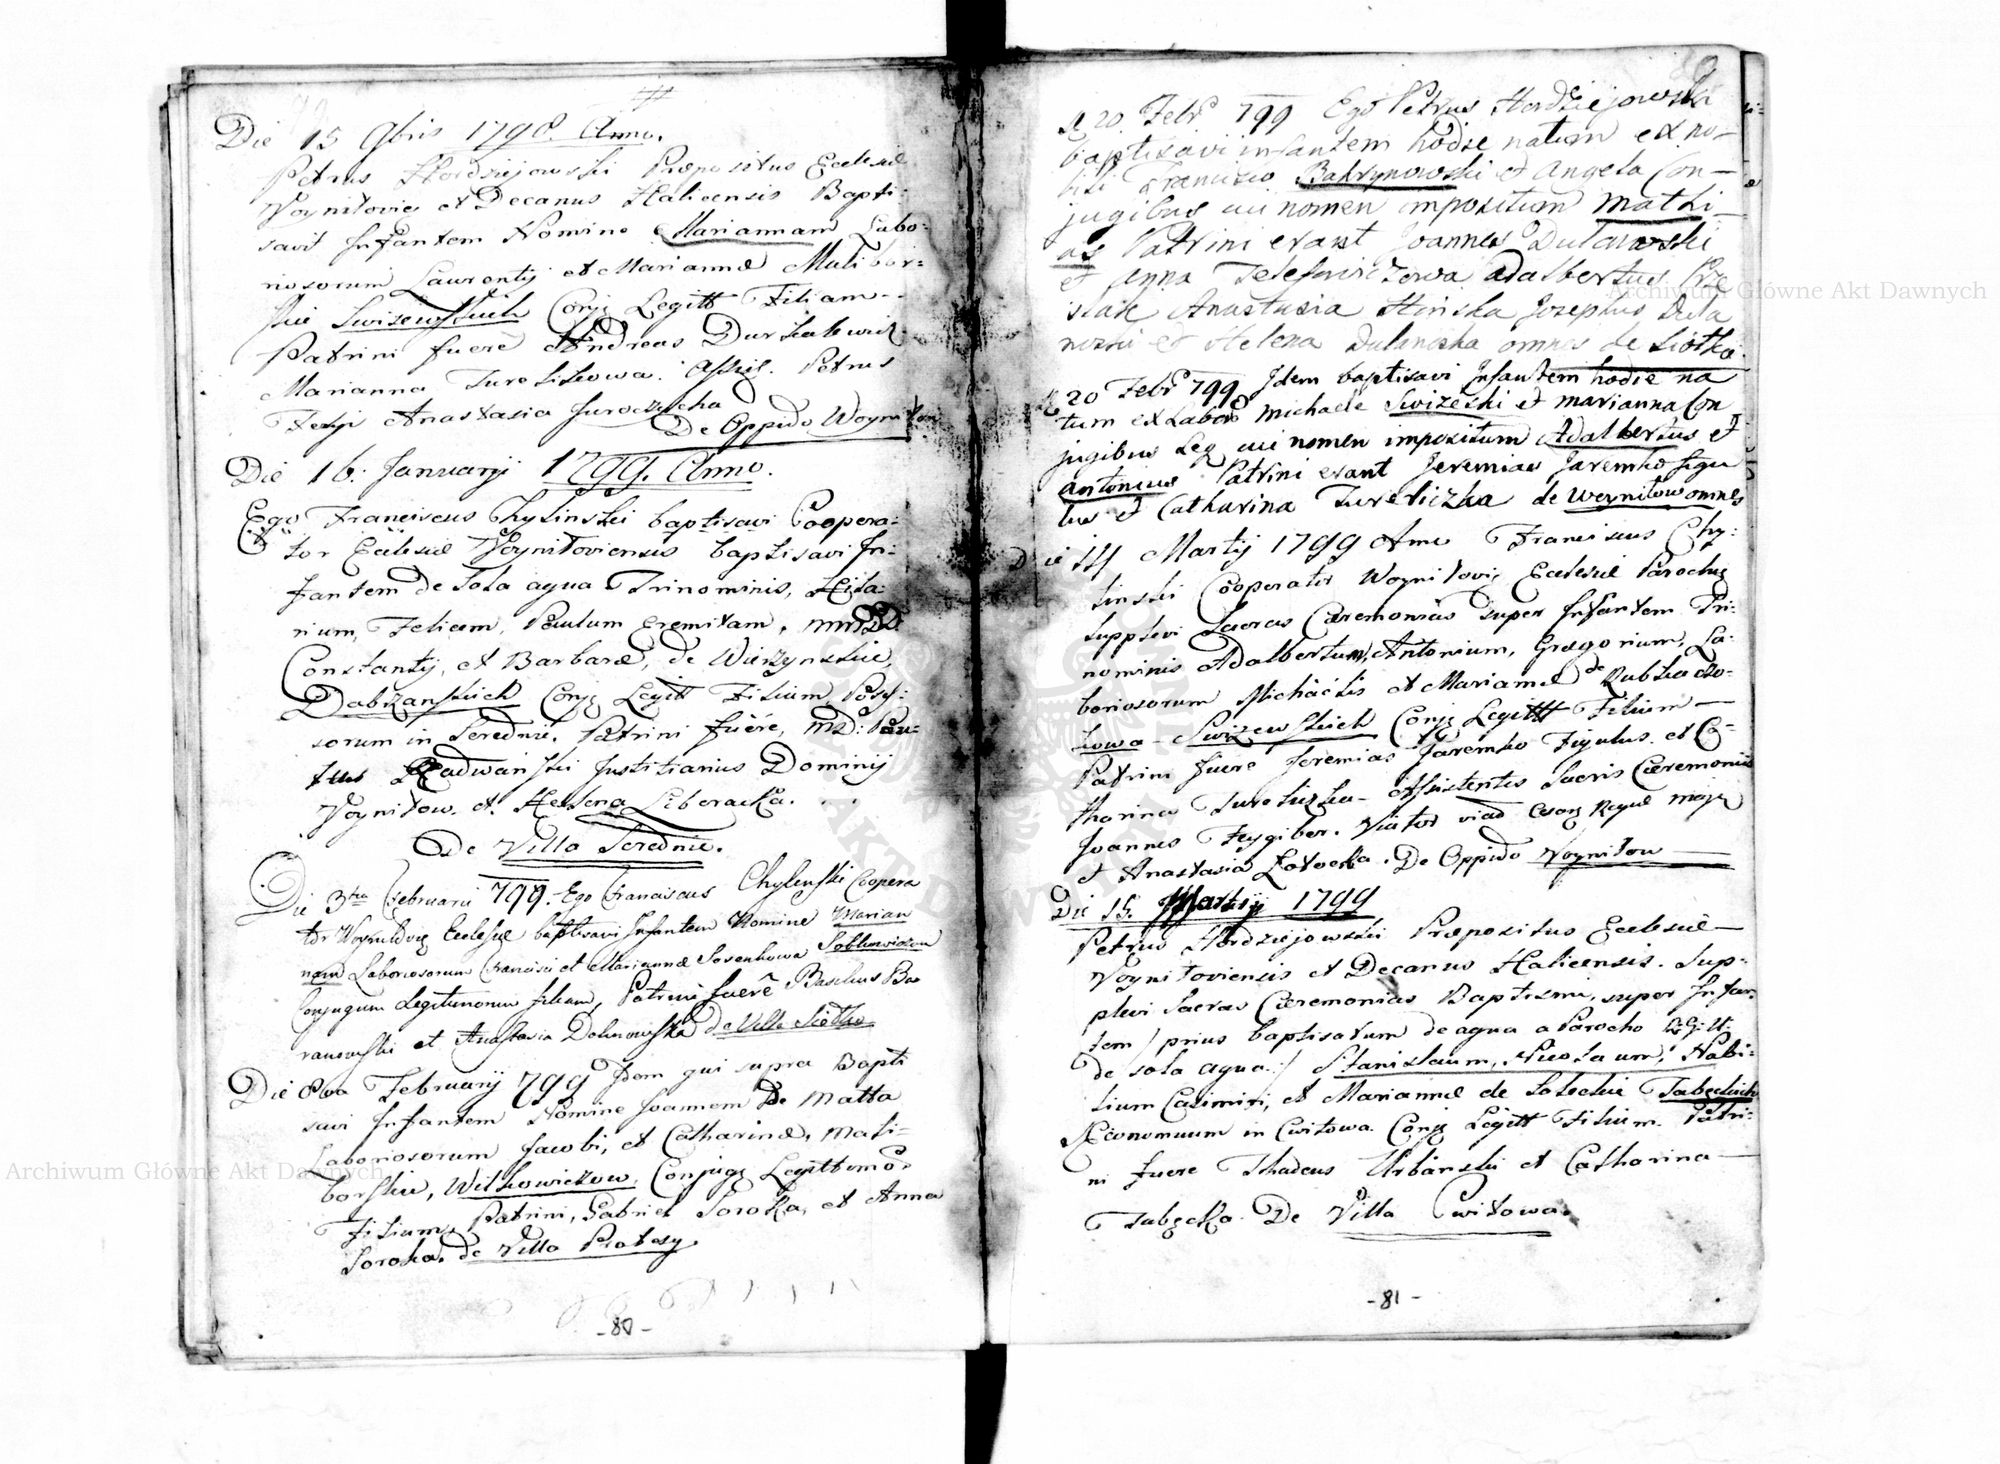 Die 15 9bris 1798. Anno.
Petrus Hordziejowski Præpositus Ecclesiæ
Voynilovie et Decanus Haliciensis Bapti-
savit Infantem Nomine Mariannam Labo-
riosorum Laurentij et Mariannæ Malibor-
skie Swizewskich Conjg Legitt Filiam
Patrini fuere Andreas Durkalewicz
Marianna Tureliskowa. Assis. Petrus
Anastasia
De Oppido Woynilow
Die 16. Januarij 1799. Anno.
Ego Franciscus Chylinski baptisavi Coopera-
tor Ecclesiæ Voyniloviensis baptisavi In-
fantem de Sola aqua Trinominis, Hila-
rium, Felicem, Paulum Eremitam, MMDD
Constantij, et Barbaræ, de Wierzynskie,
Dabrzanskich Conjg Legitt Filium Poss:
sorum in Serednie. Patrini fuere, MD: Pau-
lus Radwanski Justitiarius Dominij
Voynilow. et Helena Liberacka.
De Villa Serednie.
Die 3tia Februarii 799. Ego Franciscus Chylinski Coopera
tor Woynilovie Ecclesiæ baptisavi Infantem Nomine Marian
nam Laboriosorum Francisci et Mariannæ Sosenkowa
Conjugum Legitimorum filiam, Patrini fuere Basilius Ba
ranowski et Anastasia Dolinowska de Villa Siotka
Die 8va Februarij 799 Idem qui supra Bapti
savi Infantem Nomine Joannem De Matta
Laboriosorum Jacobi, et Catharinæ, Mali-
borskie, Witkowiczow, Conjugg Legittimo.
Filium, Patrini, Gabriel Soroka, et Anna
Soroka. de Villa Prebesy.
-80-
20 Febr 799 Ego Petrus Hordziejowski
baptisavi infantem hodie natum ex no-
bili Francisco Bakrynowski et Angela Con-
jugibus cui nomen impositum Mathi-
as Patrini erant Joannes Dulanoski
et Anna Telefaniczowa Adalbertus
Anastasia Hinska Josephus Dula
noski et Helena Dulanoska omnes de Siotka.
20 Febr 799 Idem baptisavi Infantem hodie na
tum ex Labor Michaele Swizeski et Marianna Con
jugibus Leg cui nomen impositum Adalbertus et
Antonius Patrini erant Jeremias Jaremko figu
lus et Catharina Tureliczka de Woynilow omnes
Die 14 Martij 1799 Anno Franciscus Chy-
linski Cooperator Woynilovie Ecclesiæ Parochie
supplevi Sacras Cæremonias super Infantem Tri-
nominis Adalbertum, Antonium, Gregorium, La-
boriosorum Michäelis et Mariannæ de
kowa Swizewskich Conjg Legittt Filium
Patrini fuere Jeremias Jaremko Figulus. et Ca-
tharina Tureliczka Assistentes Sacris Cæremoniis
Joannes Feygiber.
et Anastasia Lotocka. De Oppido Voynilow
Die 15. Martij 1799
Petrus Hordziejowski Præpositus Ecclesiæ
Voyniloviensis et Decanus Haliciensis. Sup-
plevi Sacras Cæremonias Baptismi, super Infan-
tem / prius baptisatum de aqua a Parocho
de sola aqua:/ Stanislaum, Nicolaum, Nobi-
lium Casimiri, et Mariannæ de Soleckie Tabęckich
Æconomuum in Cwitowa Conjg Legitt Filium. Patri-
ni fuere Thadeus Urbanski et Catharina
Tabęcka. De Villa Cwitowa.
-81-
Archiwum Główne Akt Dawnych
Archiwum Główne Akt Dawnych